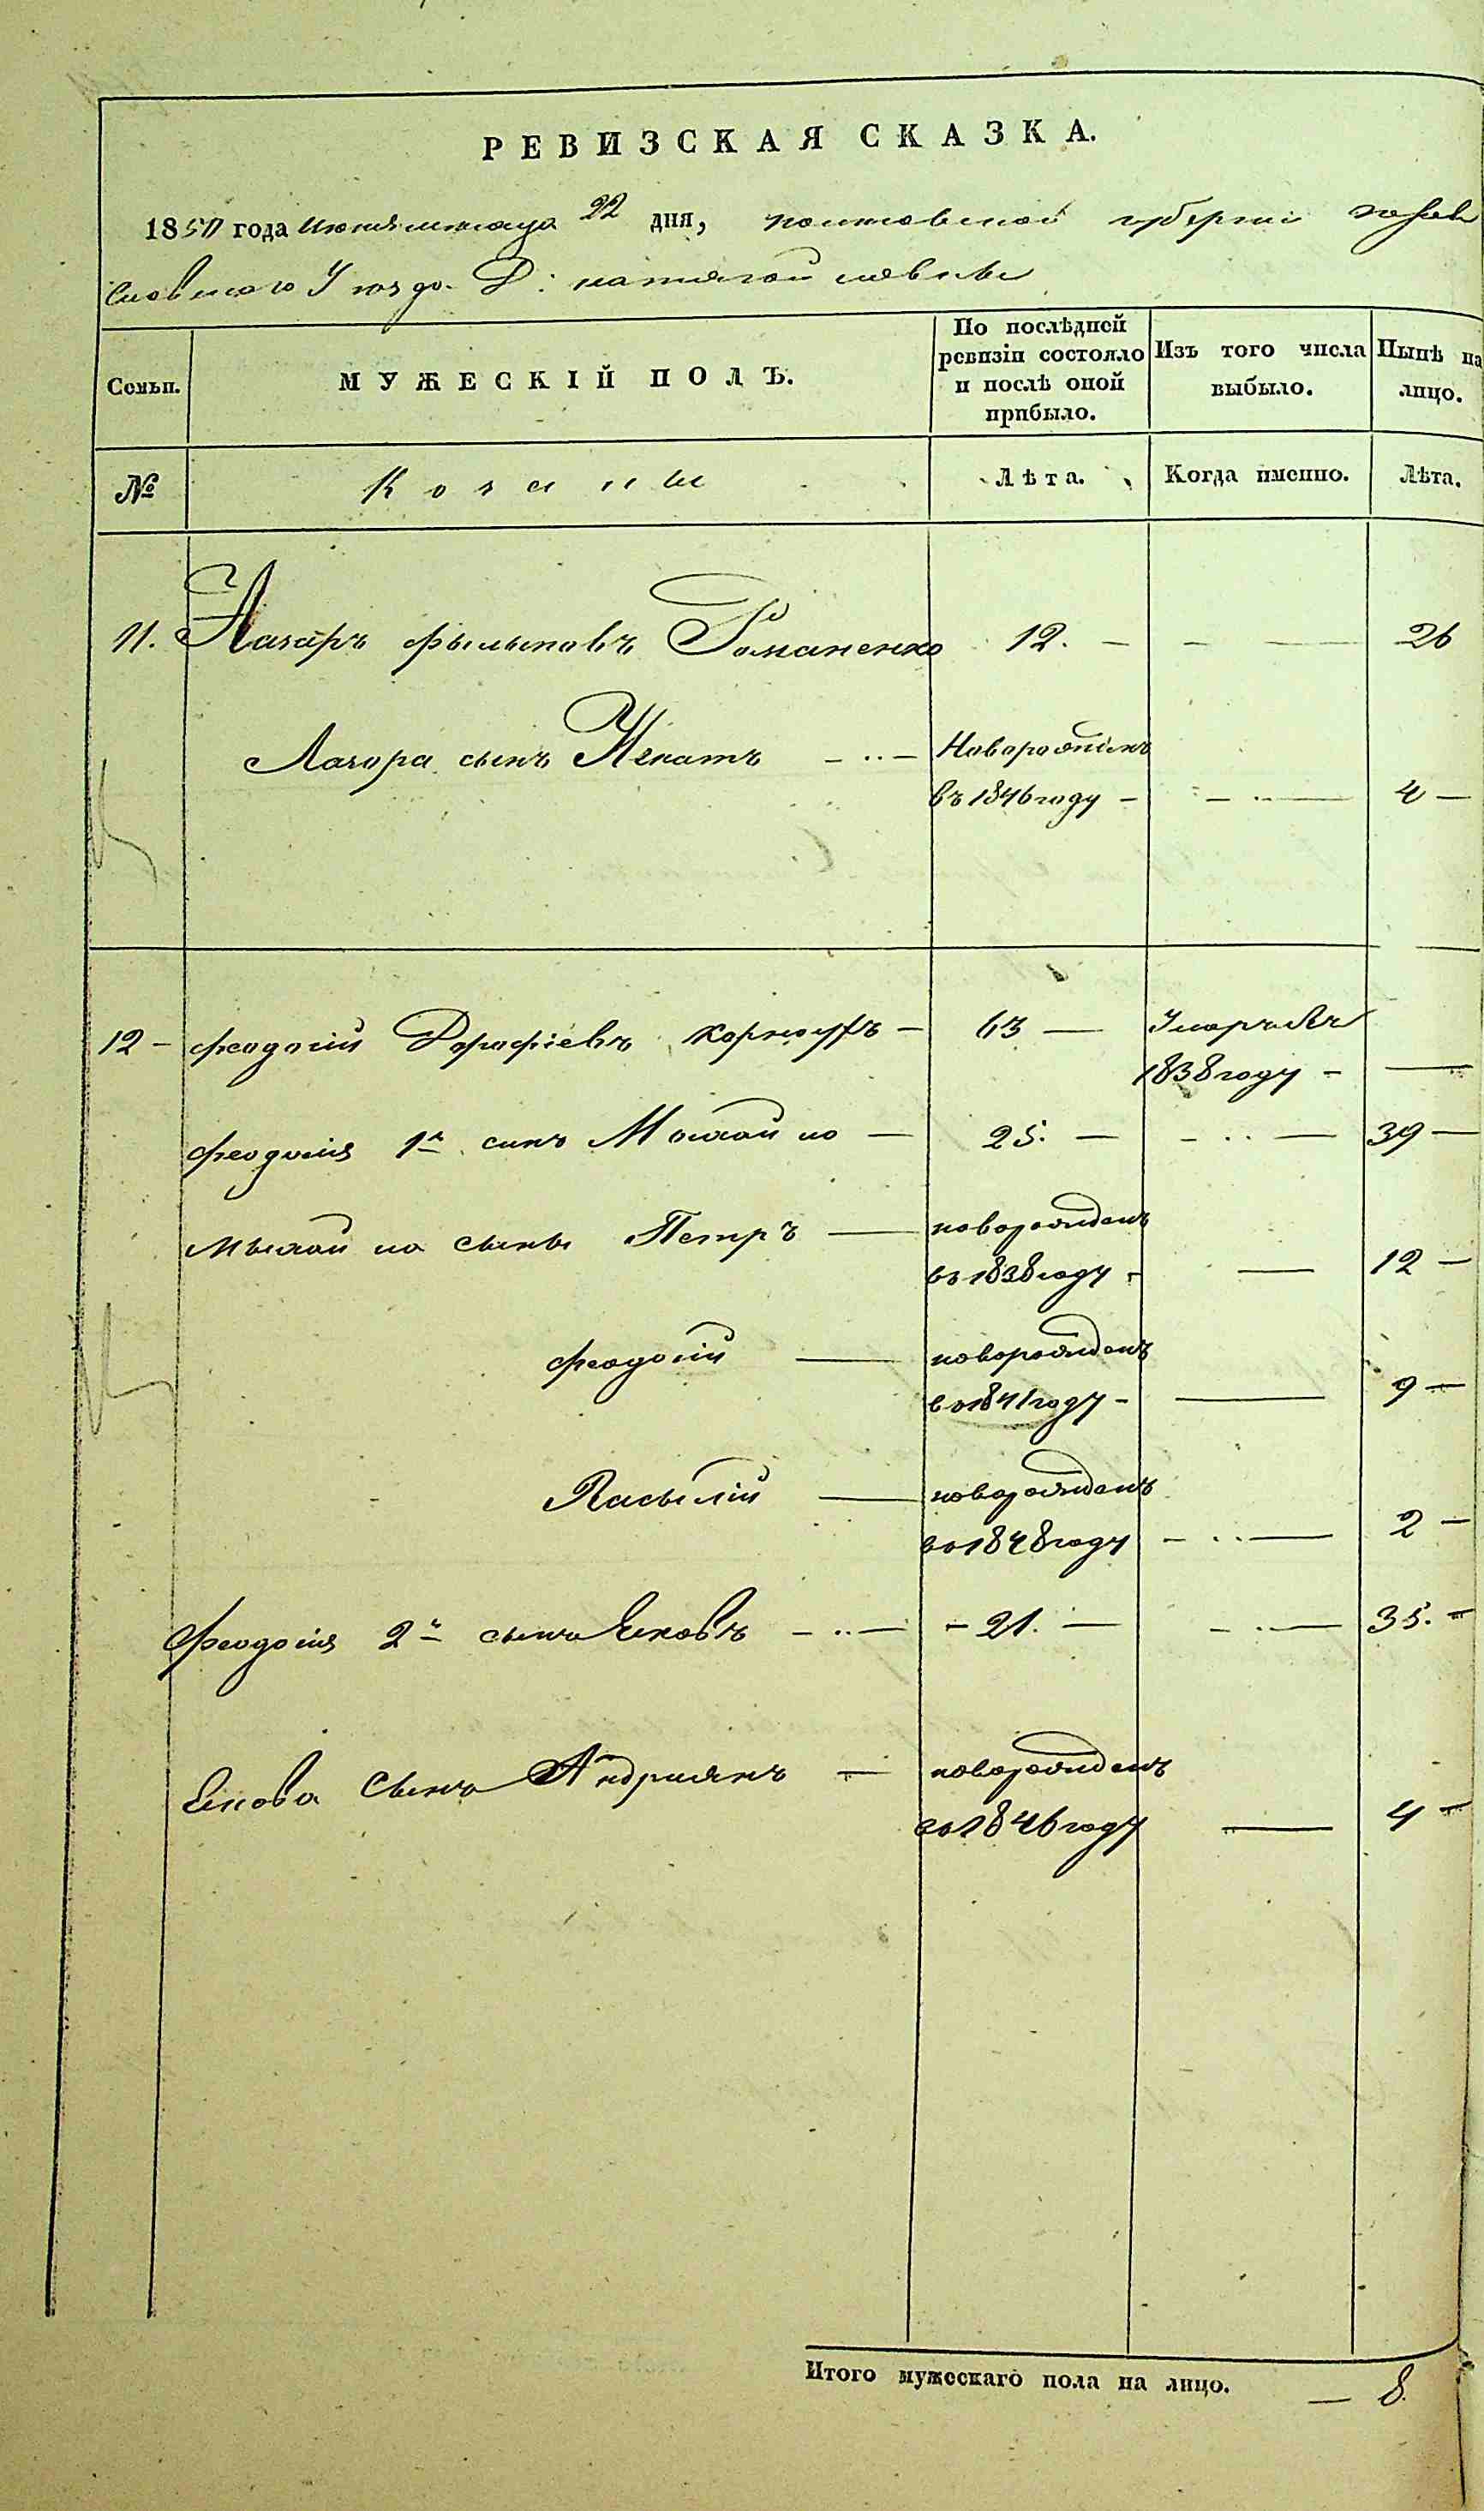 РЕВИЗСКАЯ СКАЗКА.
1850 года июня месяца 22 дня, полтавской губернии
Уезда. Д:
Семьи.
МУЖЕСКІЙ ПОЛЪ.
По послѣдней ревизіи состояло и послѣ оной прибыло.
Изъ того числа выбыло.
Нынѣ на лицо.
№
Козаки
Лѣта.
Когда именно.
Лѣта.
11. Лазаръ Романенко 12. — 26
Лазора сынъ Игнатъ — Новорожденъ
въ 1846 году — 4 —
12 — феодосій Дорофіевъ — 63 — Умеръ въ
1838 году —
феодосія 1й синъ Михайло — 25. — 39 —
Михайла сыны Петръ — новорожденъ
во 1838 году — 12 —
феодосій — новорожденъ
во 1841 году — 9 —
Васылій — новорожденъ
во 1848 году — 2 —
феодосія 2й сынъ Яковъ — 21. — 35. —
Якова Сынъ Андриянъ — новорожденъ
во 1846 году — 4 —
Итого мужескаго пола на лицо. — 8.